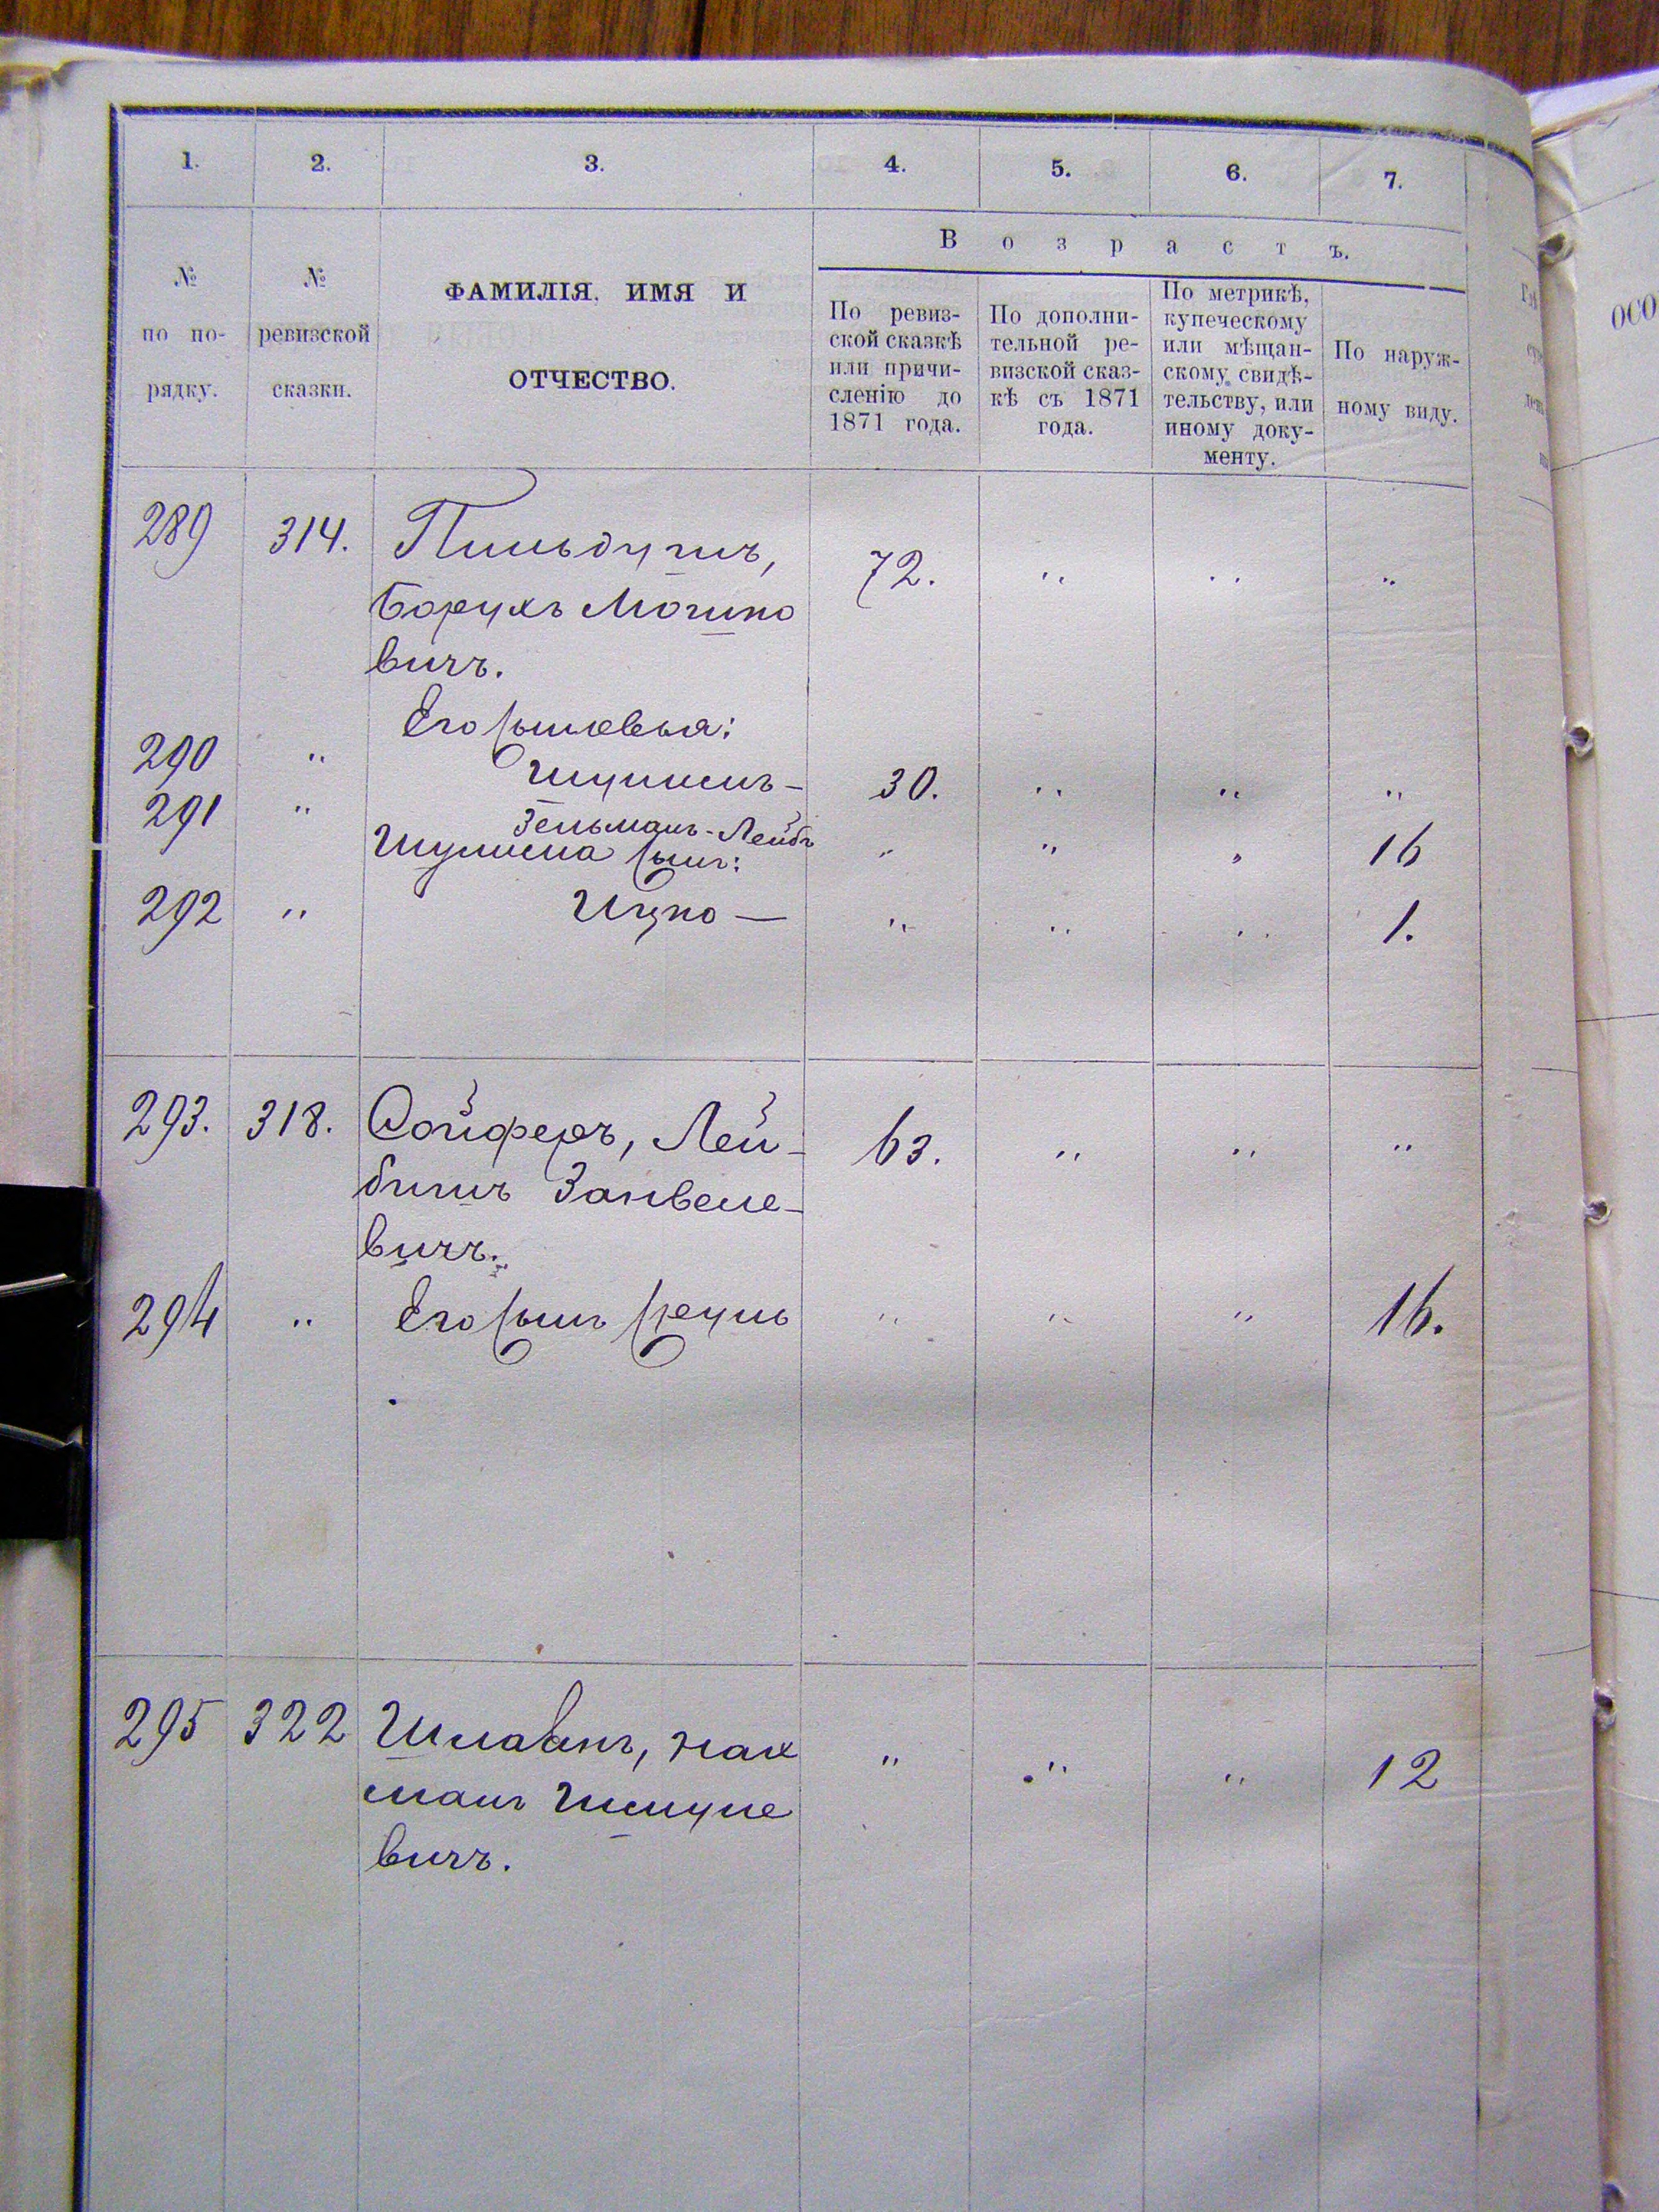 1. 2. 3. 4. 5. 6. 7.
В о з р а с т ъ.
№ по по-рядку.
№ ревизской сказки.
ФАМИЛІЯ, ИМЯ И
ОТЧЕСТВО.
По ревиз-
ской сказкѣ
или причи-
сленію до
1871 года.
По дополни-
тельной ре-
визской сказ-
кѣ съ 1871
года.
По метрикѣ,
купеческому
или мѣщан-
скому свидѣ-
тельству, или
иному доку-
менту.
По наруж-
ному виду.
289 314. 72. " " "
Борухъ
вичъ.
Его сыновья:
290 " 30. " " "
291 " Зельманъ-Лейбъ " " " 16
сынъ:
292 " Ицко — " " " 1.
293. 318. Сойферъ, Лей- 63. " " "
бишъ Занвеле-
вичъ.
294 " Его сынъ Сруль " " " 16.
295 322 Нах " " " 12
манъ Шмуле
вичъ.